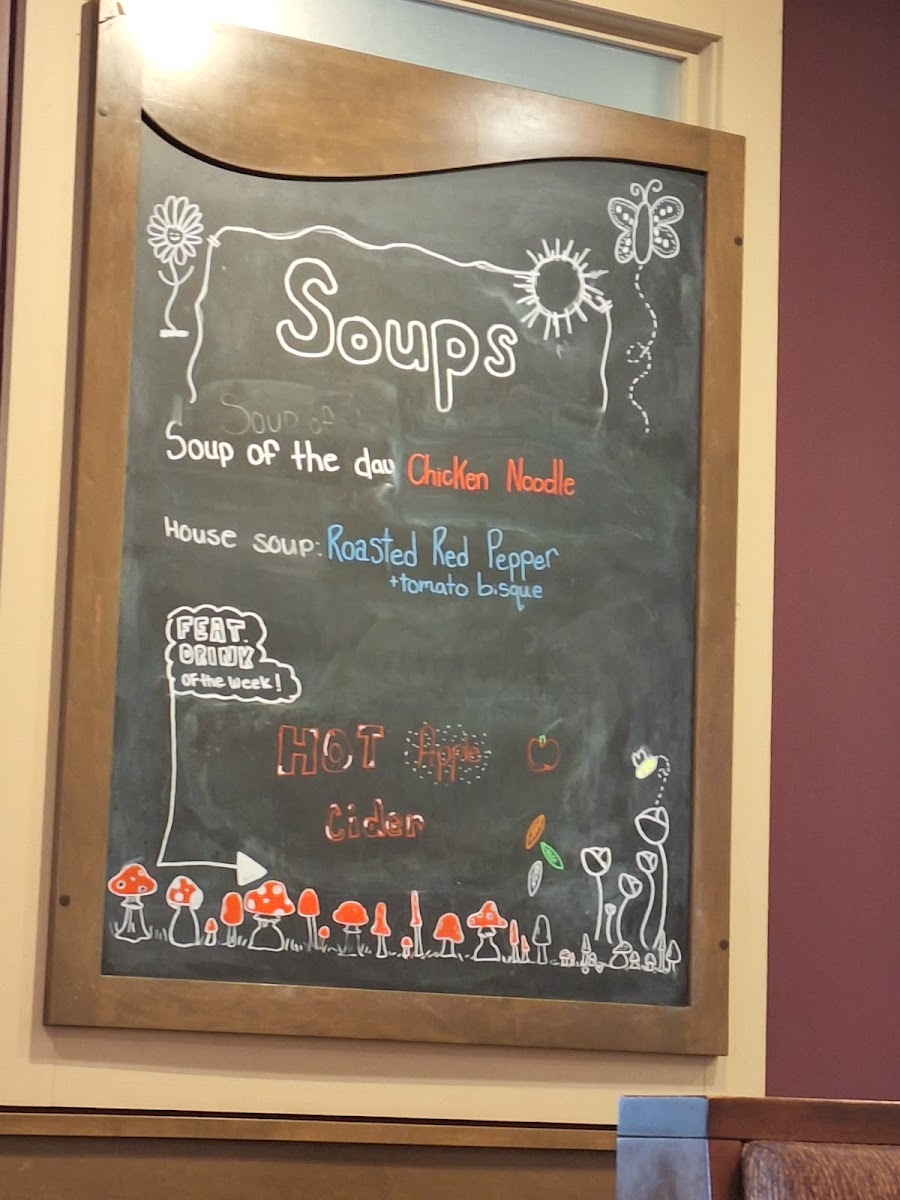 Soups
Soup of
Soup of the day Chicken Noodle
House soup: Roasted Red Pepper
+tomato bisque
FEAT.
DRINK
of the week!
HOT Apple
Cider